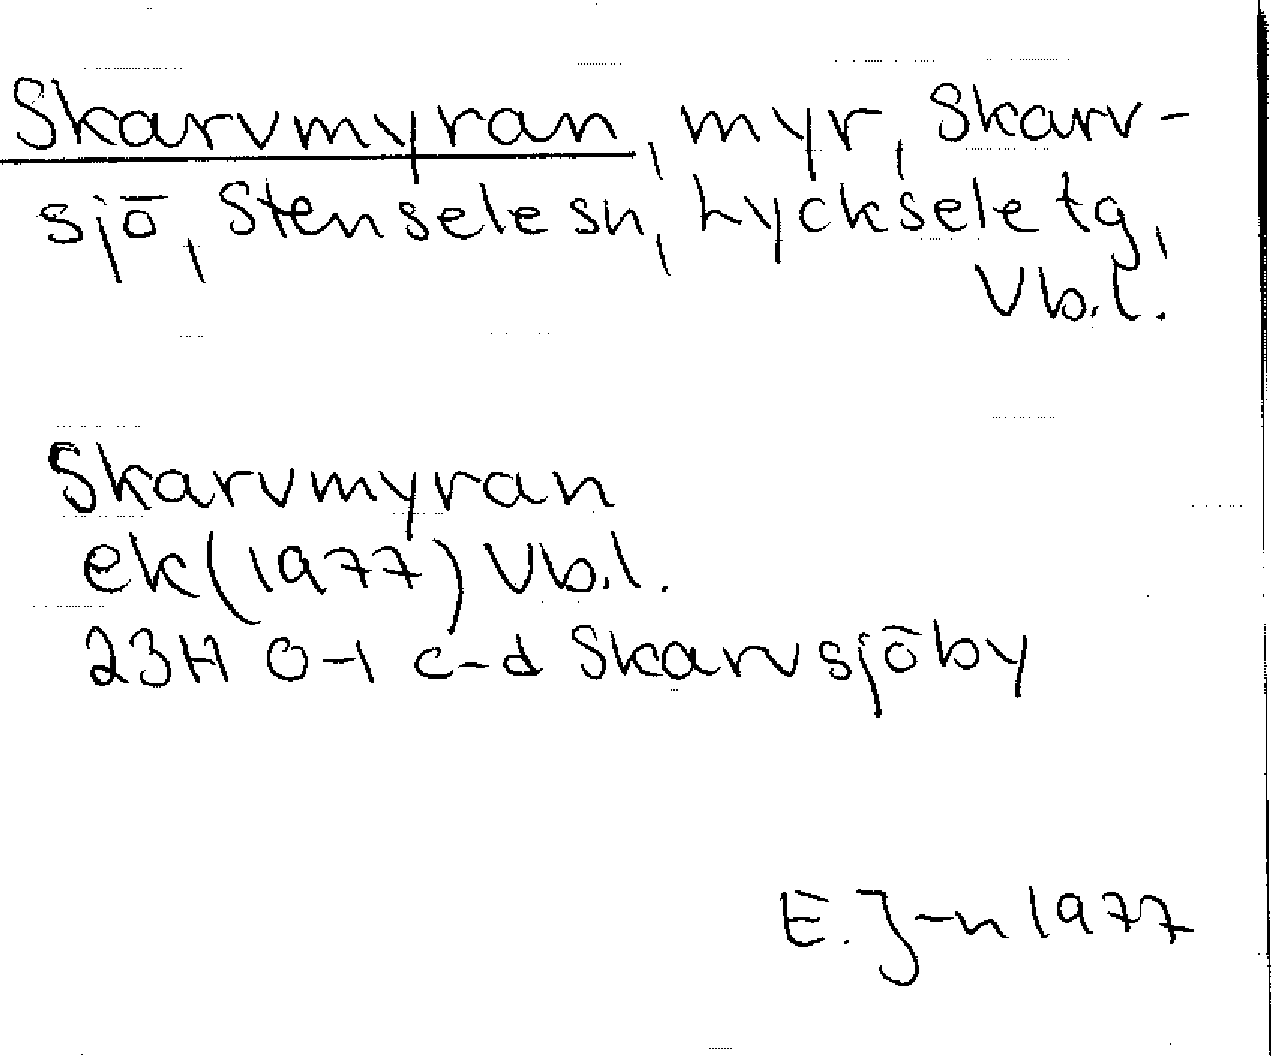 Skarvmyran, myr, Skarv-
sjö, Stensele sn, Lycksele tg,
Vb.l.
Skarvmyran
ek (1977) Vb.l.
23H 0-1 c-d Skarvsjöby
E. J-n 1977